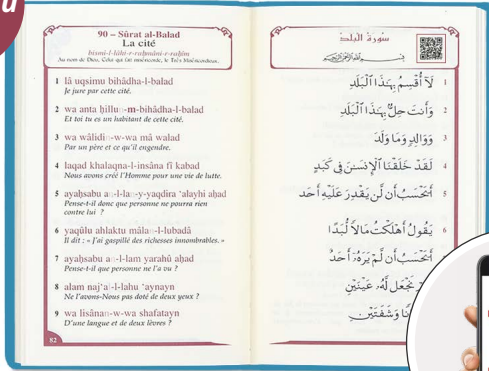 u
90 – Sûrat al-Balad
La cité
bismi-l-lâhi-r-rahmâni-r-rahîm
Au nom de Dieu, Celui qui fait miséricorde, le Très Miséricordieux.
1 lâ uqsimu bihâdha-l-balad
Je jure par cette cité.
2 wa anta hillu-m-bihâdha-l-balad
Et toi tu es un habitant de cette cité.
3 wa wâlidi-w-wa mâ walad
Par un père et ce qu'il engendre.
4 laqad khalaqna-l-insâna fî kabad
Nous avons créé l'Homme pour une vie de lutte.
5 ayahsabu a-l-la-y-yaqdira ‘alayhi ahad
Pense-t-il donc que personne ne pourra rien
contre lui ?
6 yaqûlu ahlaktu mâla-l-lubadâ
Il dit : « J'ai gaspillé des richesses innombrables. »
7 ayahsabu a-l-lam yarahû ahad
Pense-t-il que personne ne l'a vu ?
8 alam naj‘a-l-lahu ‘aynayn
Ne l'avons-Nous pas doté de deux yeux ?
9 wa lisâna-w-wa shafatayn
D'une langue et de deux lèvres ?
82
سُورَةُ الْبَلَدِ
لَآ أُقْسِمُ بِهَٰذَا ٱلْبَلَدِ 1
وَأَنتَ حِلٌّۢ بِهَٰذَا ٱلْبَلَدِ 2
وَوَالِدٍ وَمَا وَلَدَ 3
لَقَدْ خَلَقْنَا ٱلْإِنسَٰنَ فِى كَبَدٍ 4
أَيَحْسَبُ أَن لَّن يَقْدِرَ عَلَيْهِ أَحَدٌ 5
يَقُولُ أَهْلَكْتُ مَالًا لُّبَدًا 6
أَيَحْسَبُ أَن لَّمْ يَرَهُۥٓ أَحَدٌ
نَجْعَل لَّهُۥ عَيْنَيْنِ
وَشَفَتَيْنِ